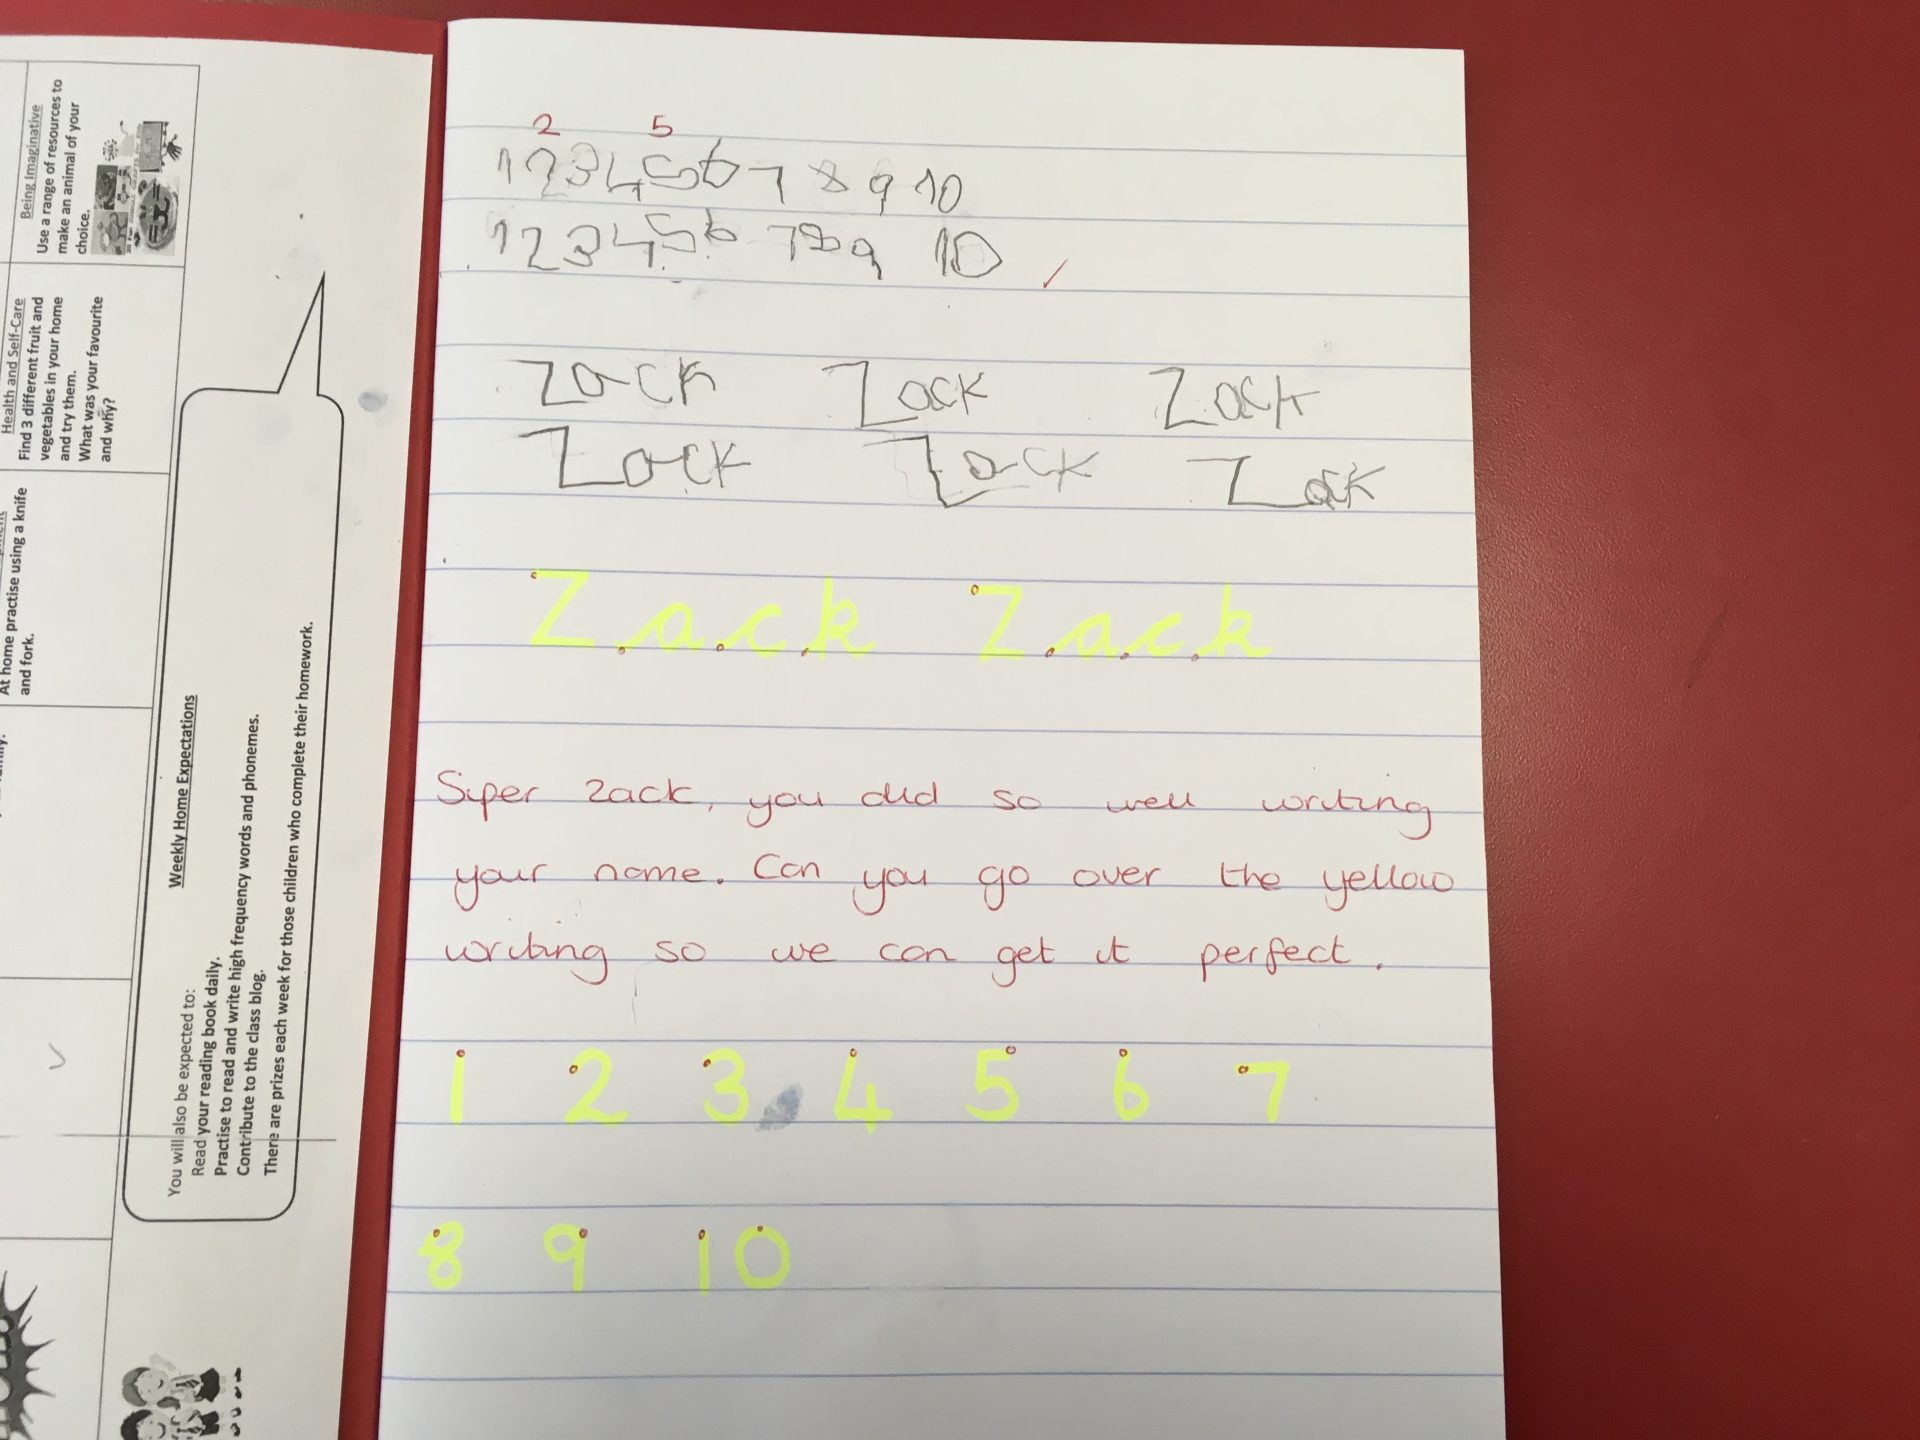 Being Imaginative
Use a range of resources to
make an animal of your
choice.
Health and Self-Care
Find 3 different fruit and
vegetables in your home
and try them.
What was your favourite
and why?
At home practise using a knife
and fork.
Weekly Home Expectations
You will also be expected to:
Read your reading book daily.
Practise to read and write high frequency words and phonemes.
Contribute to the class blog.
There are prizes each week for those children who complete their homework.
2 5
1 2 3 4 5 6 7 8 9 10
1 2 3 4 5 6 7 8 9 10
Zack Zack Zack
Zack Zack Zack
Zack Zack
Super Zack, you did so well writing
your name. Can you go over the yellow
writing so we can get it perfect.
1 2 3 4 5 6 7
8 9 10